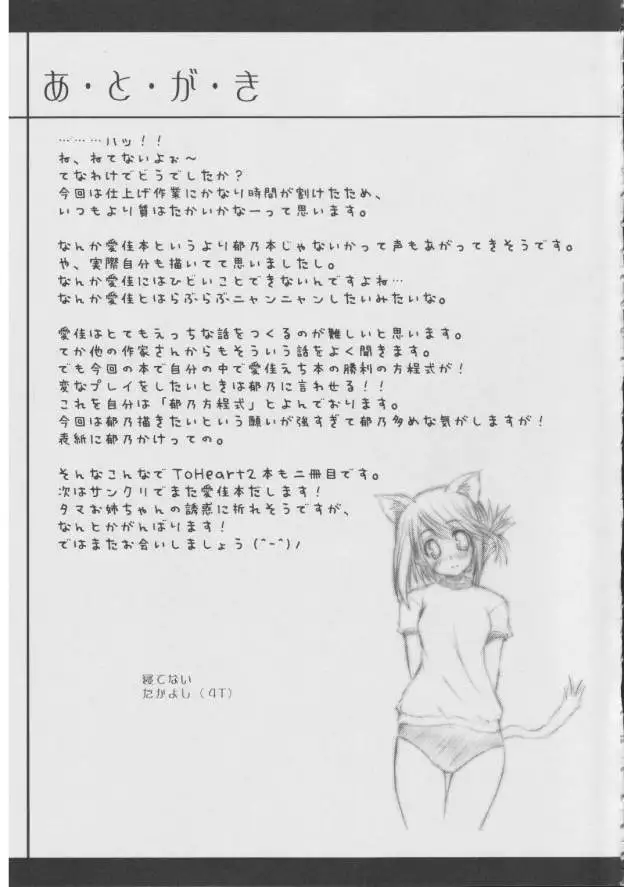 あ・と・が・き
………ハッ！！
ね、ねてないよぉ～
てなわけでどうでしたか？
今回は仕上げ作業にかなり時間が割けたため、
いつもより質はたかいかなーって思います。
なんか愛佳本というより郁乃本じゃないかって声もあがってきそうです。
や、実際自分も描いてて思いましたし。
なんか愛佳にはひどいことできないんですよね…
なんか愛佳とはらぶらぶニャンニャンしたいみたいな。
愛佳はとてもえっちな話をつくるのが難しいと思います。
てか他の作家さんからもそういう話をよく聞きます。
でも今回の本で自分の中で愛佳えち本の勝利の方程式が！
変なプレイをしたいときは郁乃に言わせる！！
これを自分は「郁乃方程式」とよんでおります。
今回は郁乃描きたいという願いが強すぎて郁乃多めな気がしますが！
表紙に郁乃かけっての。
そんなこんなでToHeart2本も二冊目です。
次はサンクリでまた愛佳本だします！
タマお姉ちゃんの誘惑に折れそうですが、
なんとかがんばります！
ではまたお会いしましょう(^-^)ﾉ
寝てない
たかよし(4T)